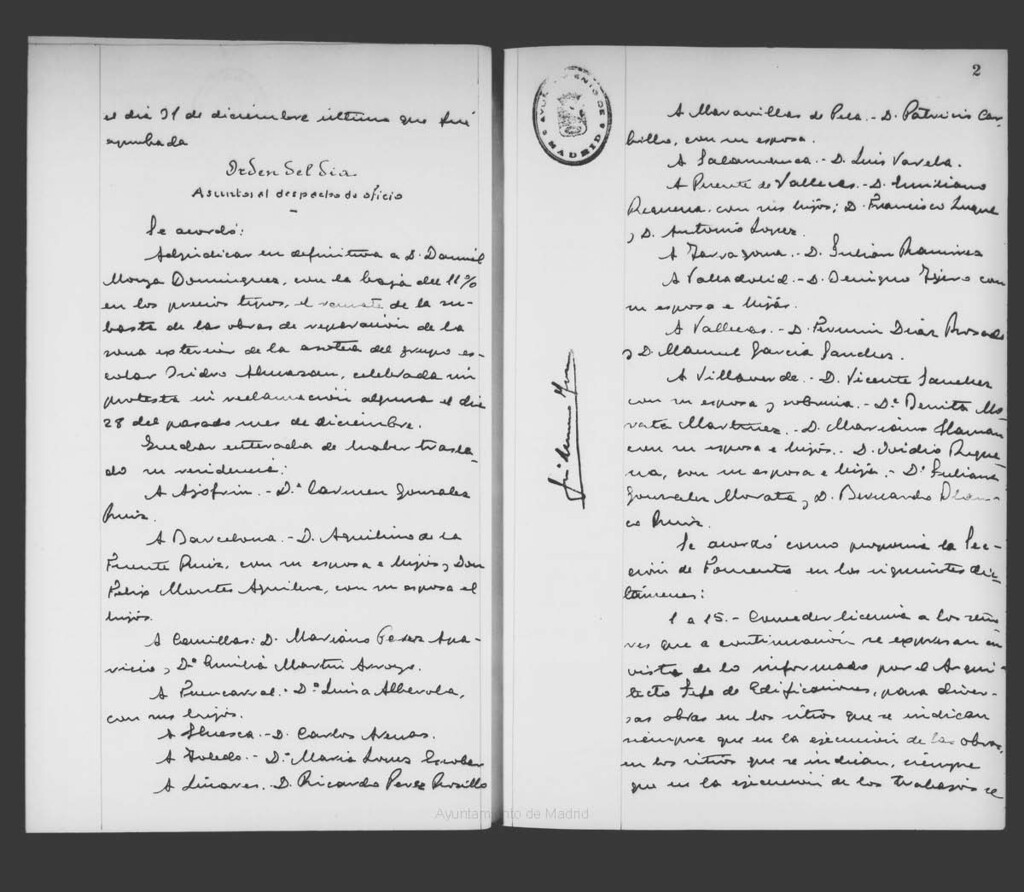 el dia 31 de diciembre ultimo que fué
aprobada
Orden del Dia
Asuntos al despacho de oficio
Se acordó:
Adjudicar en definitiva a D. Daniel
Monza Dominguez, con la baja del 11%
en los precios tipos, el remate de la su-
basta de las obras de reparación de la
zona exterior de la azotea del grupo es-
colar Isidro Almazan, celebrada sin
protesta ni reclamación alguna el dia
28 del pasado mes de diciembre.
Quedar enterada de haber trasla-
do su residencia:
A Ajofrin.- Dª Carmen Gonzalez
Ruiz.
A Barcelona.- D. Aquilino de la
Fuente Ruiz, con su esposa e hijos y Don
Felix Montes Aguilera, con su esposa e
hijos.
A Canillas: D. Mariano Perez Apa-
ricio y Dª Emilia Martin Arroyo.
A Fuencarral.- Dª Luisa Alberola,
con sus hijos.
A Huesca.- D. Carlos Arenas.
A Toledo.- Dª Maria Luns Escobar
A Linares. D. Ricardo Perez Rosillo
2
AYUNTAMIENTO DE MADRID
A Maravillas de Pela.- D. Patricio Car-
billo, con su esposa.
A Salamanca.- D. Luis Varela.
A Puente de Vallecas.- D. Emiliano
Requena. con sus hijos; D. Francisco Luque
y D. Antonio Lopez.
A Tarragona.- D. Julian Ramirez
A Valladolid.- D. Benigno Tejero con
su esposa e hijos.
A Vallecas.- D. Fermin Diaz Rosado
y D. Manuel Garcia Sanchez.
A Villaverde.- D. Vicente Sanchez
con su esposa y sobrina.- Dª Benita Mo-
rata Martinez.- D. Mariano
con su esposa e hijos. D. Ovidio Reque-
na, con su esposa e hijos.- Dª Juliana
Gonzalez Morata y D. Bernardo Blan-
co Ruiz.
Se acordó como proponia la Sec-
ción de Fomento en los siguientes dic-
támenes:
1 a 15.- Conceder licencia a los seño-
res que a continuación se expresan en
vista de lo informado por el Arqui-
tecto Jefe de Edificaciones, para diver-
sas obras en los sitios que se indican
siempre que en la ejecución de las obras,
en los sitios que se indican, siempre
que en la ejecución de los trabajos se
Ayuntamiento de Madrid